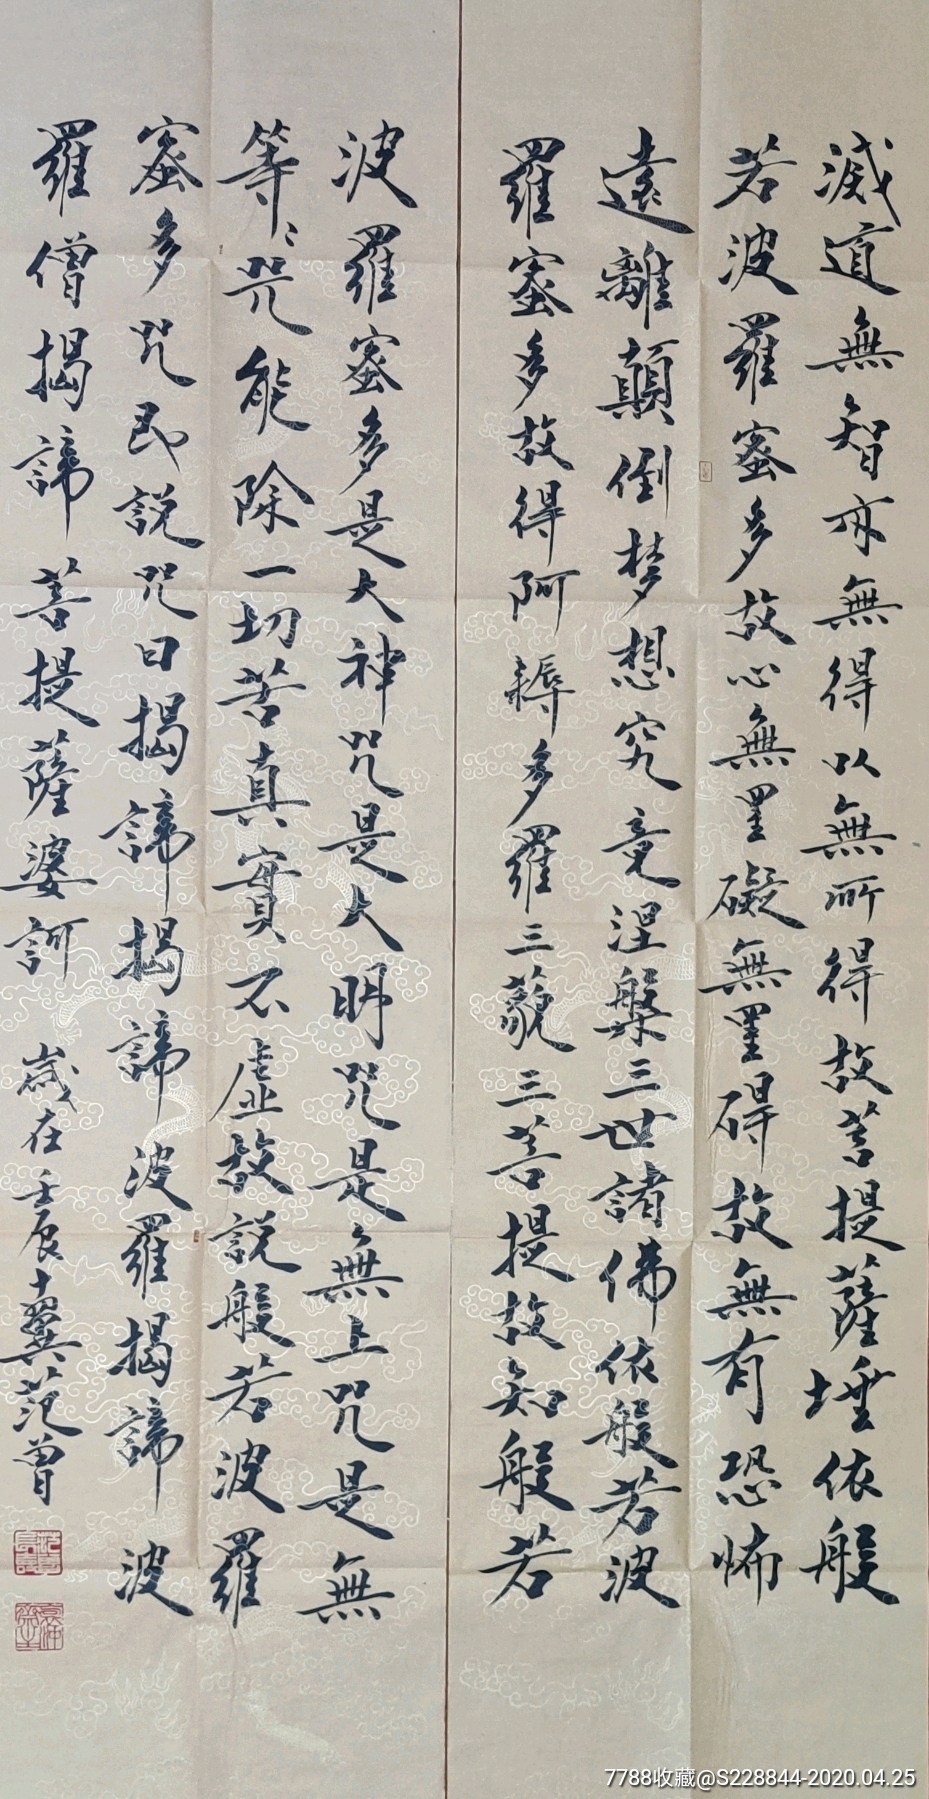 滅道無智亦無得以無所得故菩提薩埵依般
若波羅蜜多故心無罣礙無罣碍故無有恐怖
遠離顛倒梦想究竟涅槃三世諸佛依般若波
羅蜜多故得阿耨多羅三藐三菩提故知般若
波羅蜜多是大神咒是大明咒是無上咒是無
等〻咒能除一切苦真實不虚故説般若波羅
蜜多咒即説咒曰揭諦揭諦波羅揭諦波
羅僧揭諦菩提薩婆訶 歲在壬辰十翼范曾
7788收藏@S228844-2020.04.25